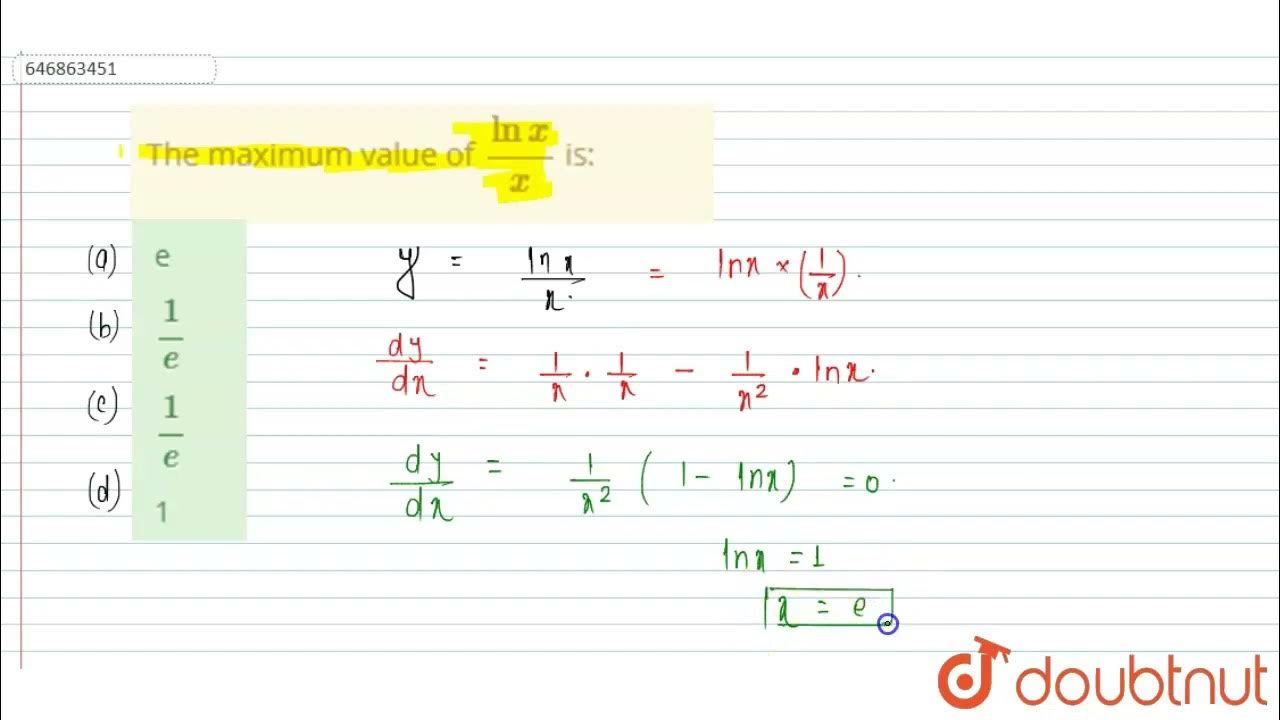 646863451
The maximum value of \frac{\ln x}{x} is:
(a) e
(b) \frac{1}{e}
(c) \frac{1}{e}
(d) 1
y = \frac{\ln x}{x} = \ln x \times \left(\frac{1}{x}\right).
\frac{dy}{dx} = \frac{1}{x} \cdot \frac{1}{x} - \frac{1}{x^2} \cdot \ln x.
\frac{dy}{dx} = \frac{1}{x^2} (1 - \ln x) = 0.
\ln x = 1
x = e
doubtnut